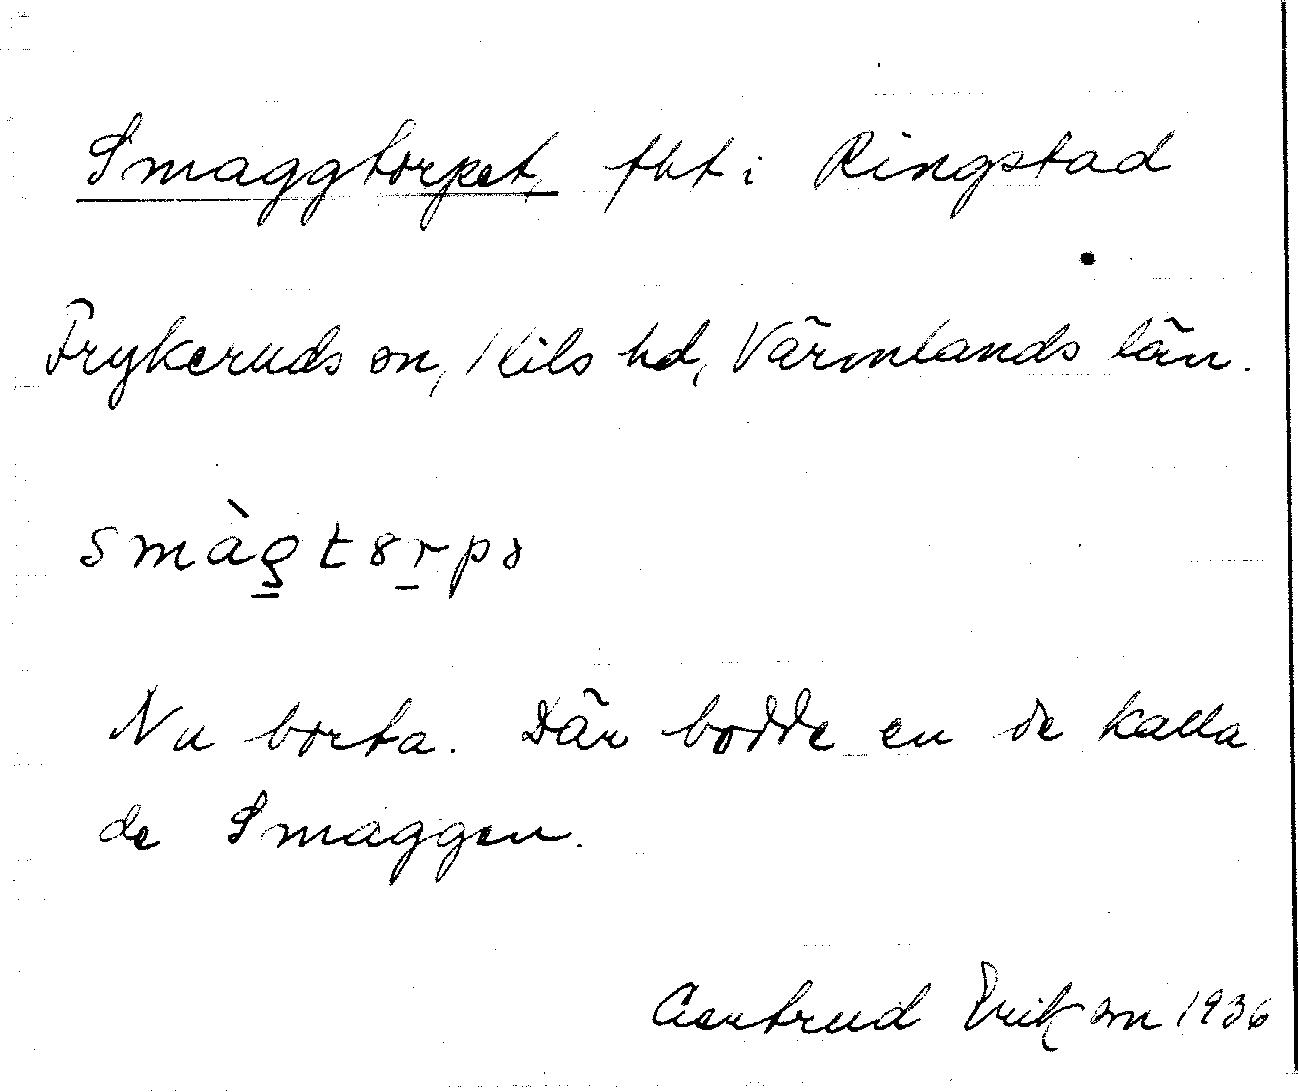 Smaggtorpet, tht i Ringstad
Frykeruds sn, Kils hd, Värmlands län.
smàg̠t8r̠pə
Nu borta. Där bodde en de kalla
de Smaggen.
Gertrud Erikson 1936